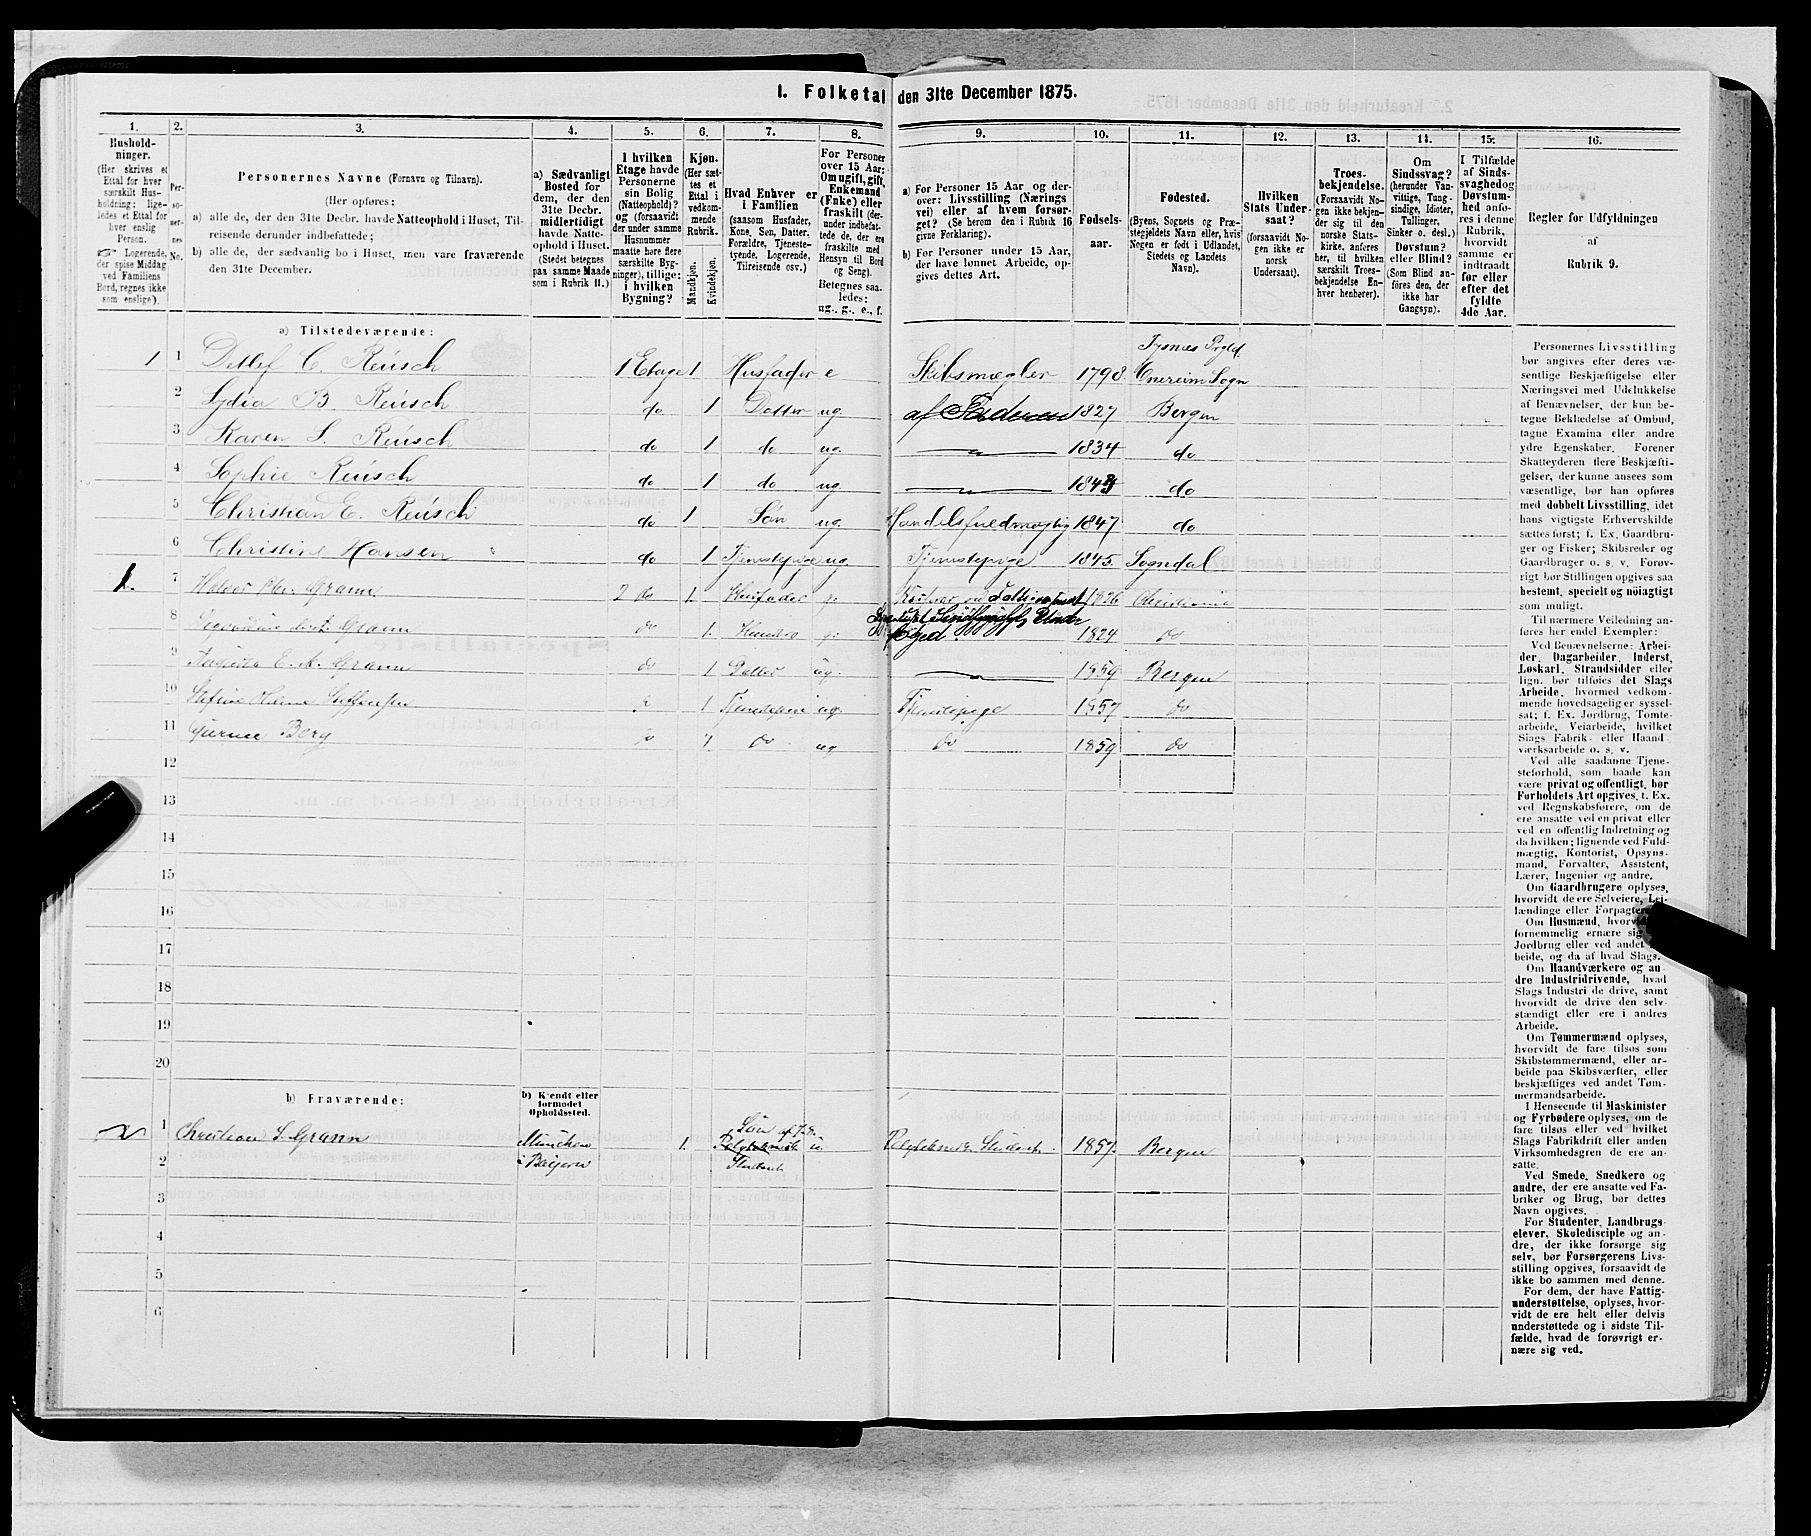 1. Folketal den 31te December 1875.
1. 2. 3. 4. 5. 6. 7. 8. 9. 10. 11. 12. 13. 14. 15. 16.
Hushold-
ninger.
(Her skrives et
Ettal for hver
særskilt Hus-
holdning; lige-
ledes et Ettal for
hver enslig
Person.
☞ Logerende,
der spise Middag
ved Familiens
Bord, regnes ikke
som enslige).
Per-
so-
ner-
nes
No.
Personernes Navne (Fornavn og Tilnavn).
(Her opføres:
a) alle de, der den 31te Decbr. havde Natteophold i Huset, Til-
reisende derunder indbefattede;
b) alle de, der sædvanlig bo i Huset, men vare fraværende
den 31te December.
a) Sædvanligt
Bosted for
dem, der den
31te Decbr.
midlertidigt
havde Natte-
ophold i Huset.
(Stedet betegnes
paa samme Maade
som i Rubrik 11.)
I hvilken
Etage havde
Personerne
sin Bolig
(Natteophold)?
og (forsaavidt
der under samme
Husnummer
maatte høre flere
særskilte Byg-
ninger), tillige:
i hvilken
Bygning?
Kjøn.
(Her sæt-
tes et
Ettal i
vedkom-
mende
Rubrik.
Mandkjøn.
Kvindekjøn.
Hvad Enhver er
i Familien
(saasom Husfader,
Kone, Søn, Datter,
Forældre, Tjeneste-
tyende, Logerende,
Tilreisende osv.)
For Personer
over 15 Aar:
Om ugift, gift,
Enkemand
(Enke) eller
fraskilt (der-
under indbefat-
tede de, der ere
fraskilte med
Hensyn til Bord
og Seng).
Betegnes saa-
ledes:
ug., g., e., f.
a) For Personer 15 Aar og der-
over: Livsstilling (Nærings
vei) eller af hvem forsør-
get? (Se herom den i Rubrik 16
givne Forklaring).
b) For Personer under 15 Aar,
der have lønnet Arbeide, op-
gives dettes Art.
Fødsels-
aar.
Fødested.
(Byens, Sognets og Præ-
stegjeldets Navn eller, hvis
Nogen er født i Udlandet,
Stedets og Landets
Navn).
Hvilken
Stats Under-
saat?
(forsaavidt No-
gen ikke er
norsk
Undersaat).
Troes-
bekjendelse.
(Forsaavidt No-
gen ikke bekjen-
der sig til den
norske Stats-
kirke, anføres
her, til hvilken
særskilt Troes-
bekjendelse En-
hver henhører).
Om
Sindssvag?
(herunder Van-
vittige, Tung-
sindige, Idioter,
Tullinger,
Sinker o. desl.)
Døvstum?
eller Blind?
(Som Blind an-
føres den, der
ikke har
Gangsyn).
I Tilfælde
af Sinds-
svaghed og
Døvstum-
hed anfø-
res i denne
Rubrik,
hvorvidt
samme er
indtraadt
før eller
efter det
fyldte
4de Aar.
Regler for Udfyldningen
af
Rubrik 9.
a) Tilstedeværende:
Tysnes Prgld.
1 1 Detlef C. Reúsch 1 Etage 1 Husfader e Skibsmægler 1798 Onereim Sogn
2 Lydia B Reúsch do 1 Datter ug. af Faderen 1827 Bergen
3 Karen S. Reúsch do 1 do ug. 1834 do
4 Sophie Reúsch do 1 do ug 184 do
5 Christian E. Reúsch do 1 Søn ug. Handelsfuldmægtig 1847 do
6 Christine Hansen do 1 Tjenestepige ug Tjenestepige 1845. Sogndal
1. 7 Grann 2 do 1. Husfader g. Christiania
8 Grann do 1. Hustru g. 1824 do
9 Augusta E. M. Grann do 1 Datter ug. 1859 Bergen
10 1 Tjenestepige ug. Tjenestepige 1857 do
11 Berg 1. do ug do 1859 do
12
13
14
15
16
17
18
19
20
b) Fraværende:
b) Kjendt eller
formodet
Opholdssted.
Søn af
1 Christian S. Grann München 1. u. Student. 1857. Bergen
2 i Bayern Student
3
4
5
6
Personernes Livsstilling
bør angives efter deres væ-
sentlige Beskjæftigelse eller
Næringsvei med Udelukkelse
af Benævnelser, der kun be-
tegne Beklædelse af Ombud,
tagne Examina eller andre
ydre Egenskaber. Forener
Skatteyderen flere Beskjæfti-
gelser, der kunne ansees som
væsentlige, bør han opføres
med dobbelt Livsstilling, idet
hans vigtigste Erhvervskilde
sættes først; f. Ex. Gaardbru-
ger og Fisker; Skibsreder og
Gaardbruger o. s. v. Forøv-
rigt bør Stillingen opgives saa
bestemt, specielt og nøiagtigt
som muligt.
Til nærmere Veiledning an-
føres her endel Exempler:
Ved Benævnelserne: Arbei-
der, Dagarbeider, Inderst,
Løskarl, Strandsidder eller
lign. bør tilføies det Slags
Arbeide, hvormed vedkom-
mende hovedsagelig er syssel-
sat; f. Ex. Jordbrug, Tomte-
arbeide, Veiarbeide, hvilket
Slags Fabrik- eller Haand-
værksarbeide o. s. v.
Ved alle saadanne Tjene-
steforhold, som baade kan
være privat og offentligt, bør
Forholdets Art opgives, t. Ex.
ved Regnskabsførere, om de
ere ansatte ved en privat eller
ved en offentlig Indretning og
da hvilken; lignende ved Fuld-
mægtig, Kontorist, Opsyns-
mand, Forvalter, Assistent,
Lærer, Ingeniør og andre.
Om Gaardbrugere oplyses,
hvorvidt de ere Selveiere, Lei-
lændinge eller Forpagtere
Om Husmænd, hvorvidt
fornemmelig ernære sig
Jordbrug eller ved andet
beide, og da af hvad Slags.
Om Haandværkere og an-
dre Industridrivende, hvad
Slags Industri de drive, samt
hvorvidt de drive den selv-
stændigt eller ere i andres
Arbeide.
Om Tømmermænd oplyses,
hvorvidt de fare tilsøs som
Skibstømmermænd, eller ar-
beide paa Skibsværfter, eller
beskjæftiges ved andet Tøm-
mermandsarbeide.
I Henseende til Maskinister
og Fyrbødere oplyses, om de
fare tilsøs eller ved hvilket
Slags Fabrikdrift eller anden
Virksomhedsgren de ere an-
satte.
Ved Smede, Snedkere og
andre, der ere ansatte ved Fa-
briker og Brug, bør dettes
Navn opgives.
For Studenter, Landbrugs-
elever, Skoledisciple og an-
dre, der ikke forsørge sig
selv, bør Forsørgerens Livs-
stilling opgives, forsaavidt de
ikke bo sammen med denne.
For dem, der have Fattig-
understøttelse, oplyses, hvor-
vidt de ere helt eller delvis
understøttede og i sidste Til-
fælde, hvad de forøvrigt er-
nære sig ved.